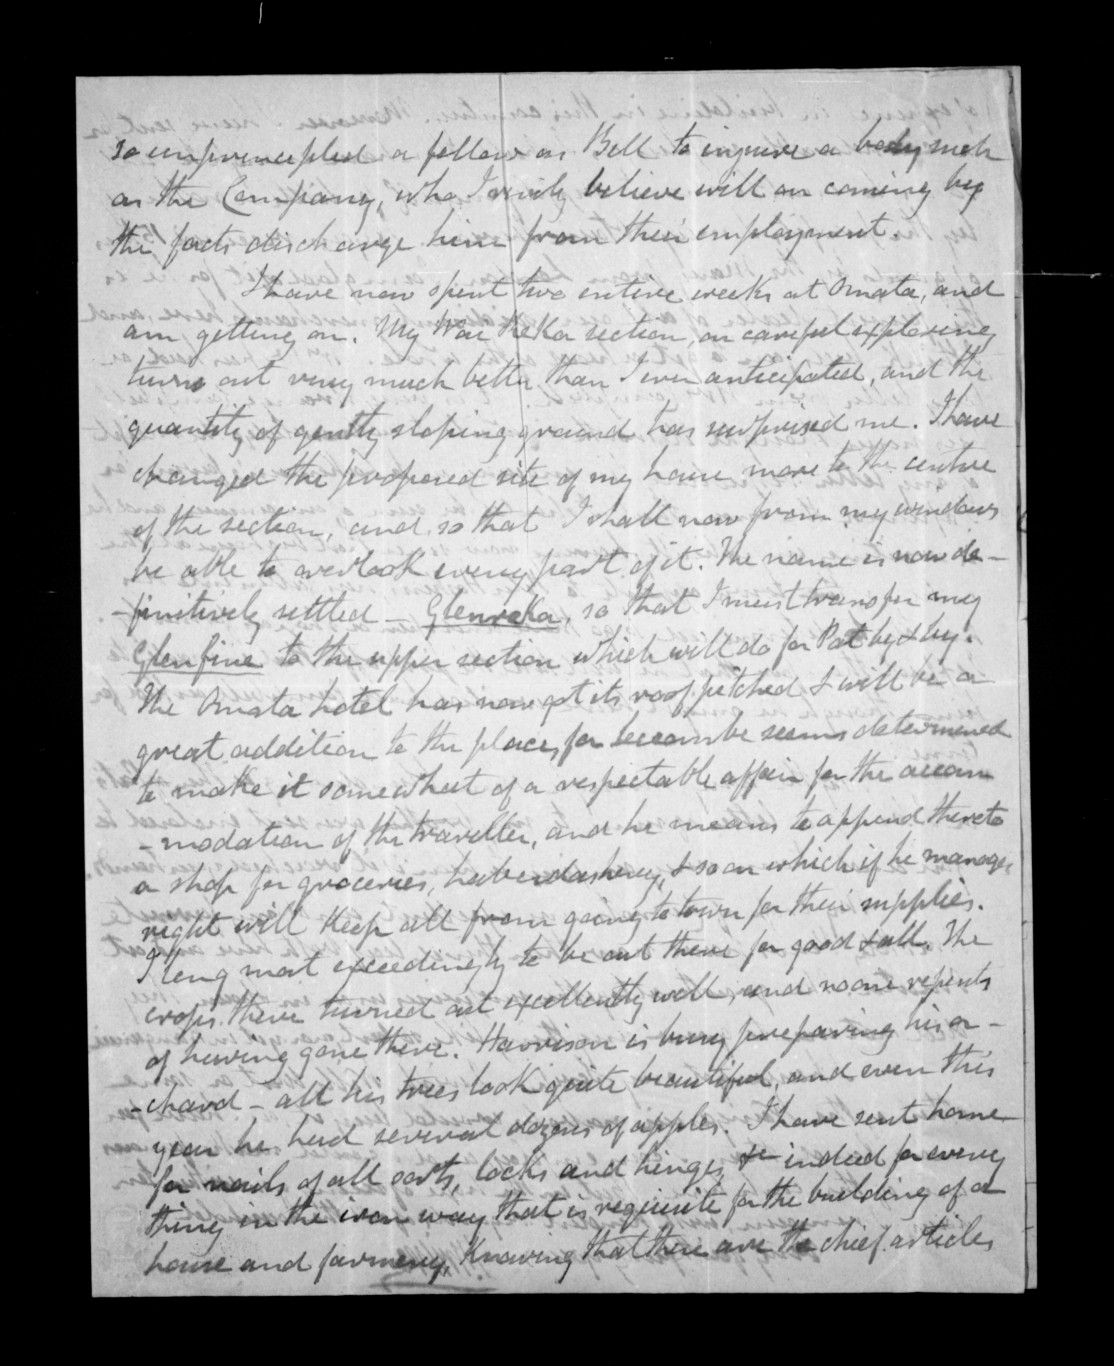 so unprincipled a fellow as Bell to injure a body such
as the Company, who I verily believe will on coming by
the facts discharge him from their employment.
I have now spent two entire weeks at Omata, and
am getting on. My Wai reka section, on careful exploring
turns out very much better than I ever anticipated, and the
quantity of gently sloping ground has surprised me. I have
changed the proposed site of my house more to the centre
of the section, and so that I shall now from my windows
be able to overlook every part of it. The name is now de-
-finitively settled - Glenreka, so that I must transfer my
Glenfine to the upper section which will do for Pat by & by.
The Omata hotel has now got its roof pitched & will be a
great addition to the place, for Seccombe seems determined
to make it somewhat of a respectable affair for the accom
-modation of the traveller, and he means to append thereto
a shop for groceries, haberdashery, & so on which if he manages
right will keep all from going to town for their supplies.
I long most exceedingly to be out there for good & all. The
crops there turned out excellently well, and no one repents
of having gone there. Harrison is busy preparing his or-
-chard - all his trees look quite beautiful, and even this
year he had several dozens of apples. I have sent home
for nails of all sorts, locks and hinges, &c indeed for every
thing in the iron way that is requisite for the building of a
house and farmery, knowing that there are the chief articles